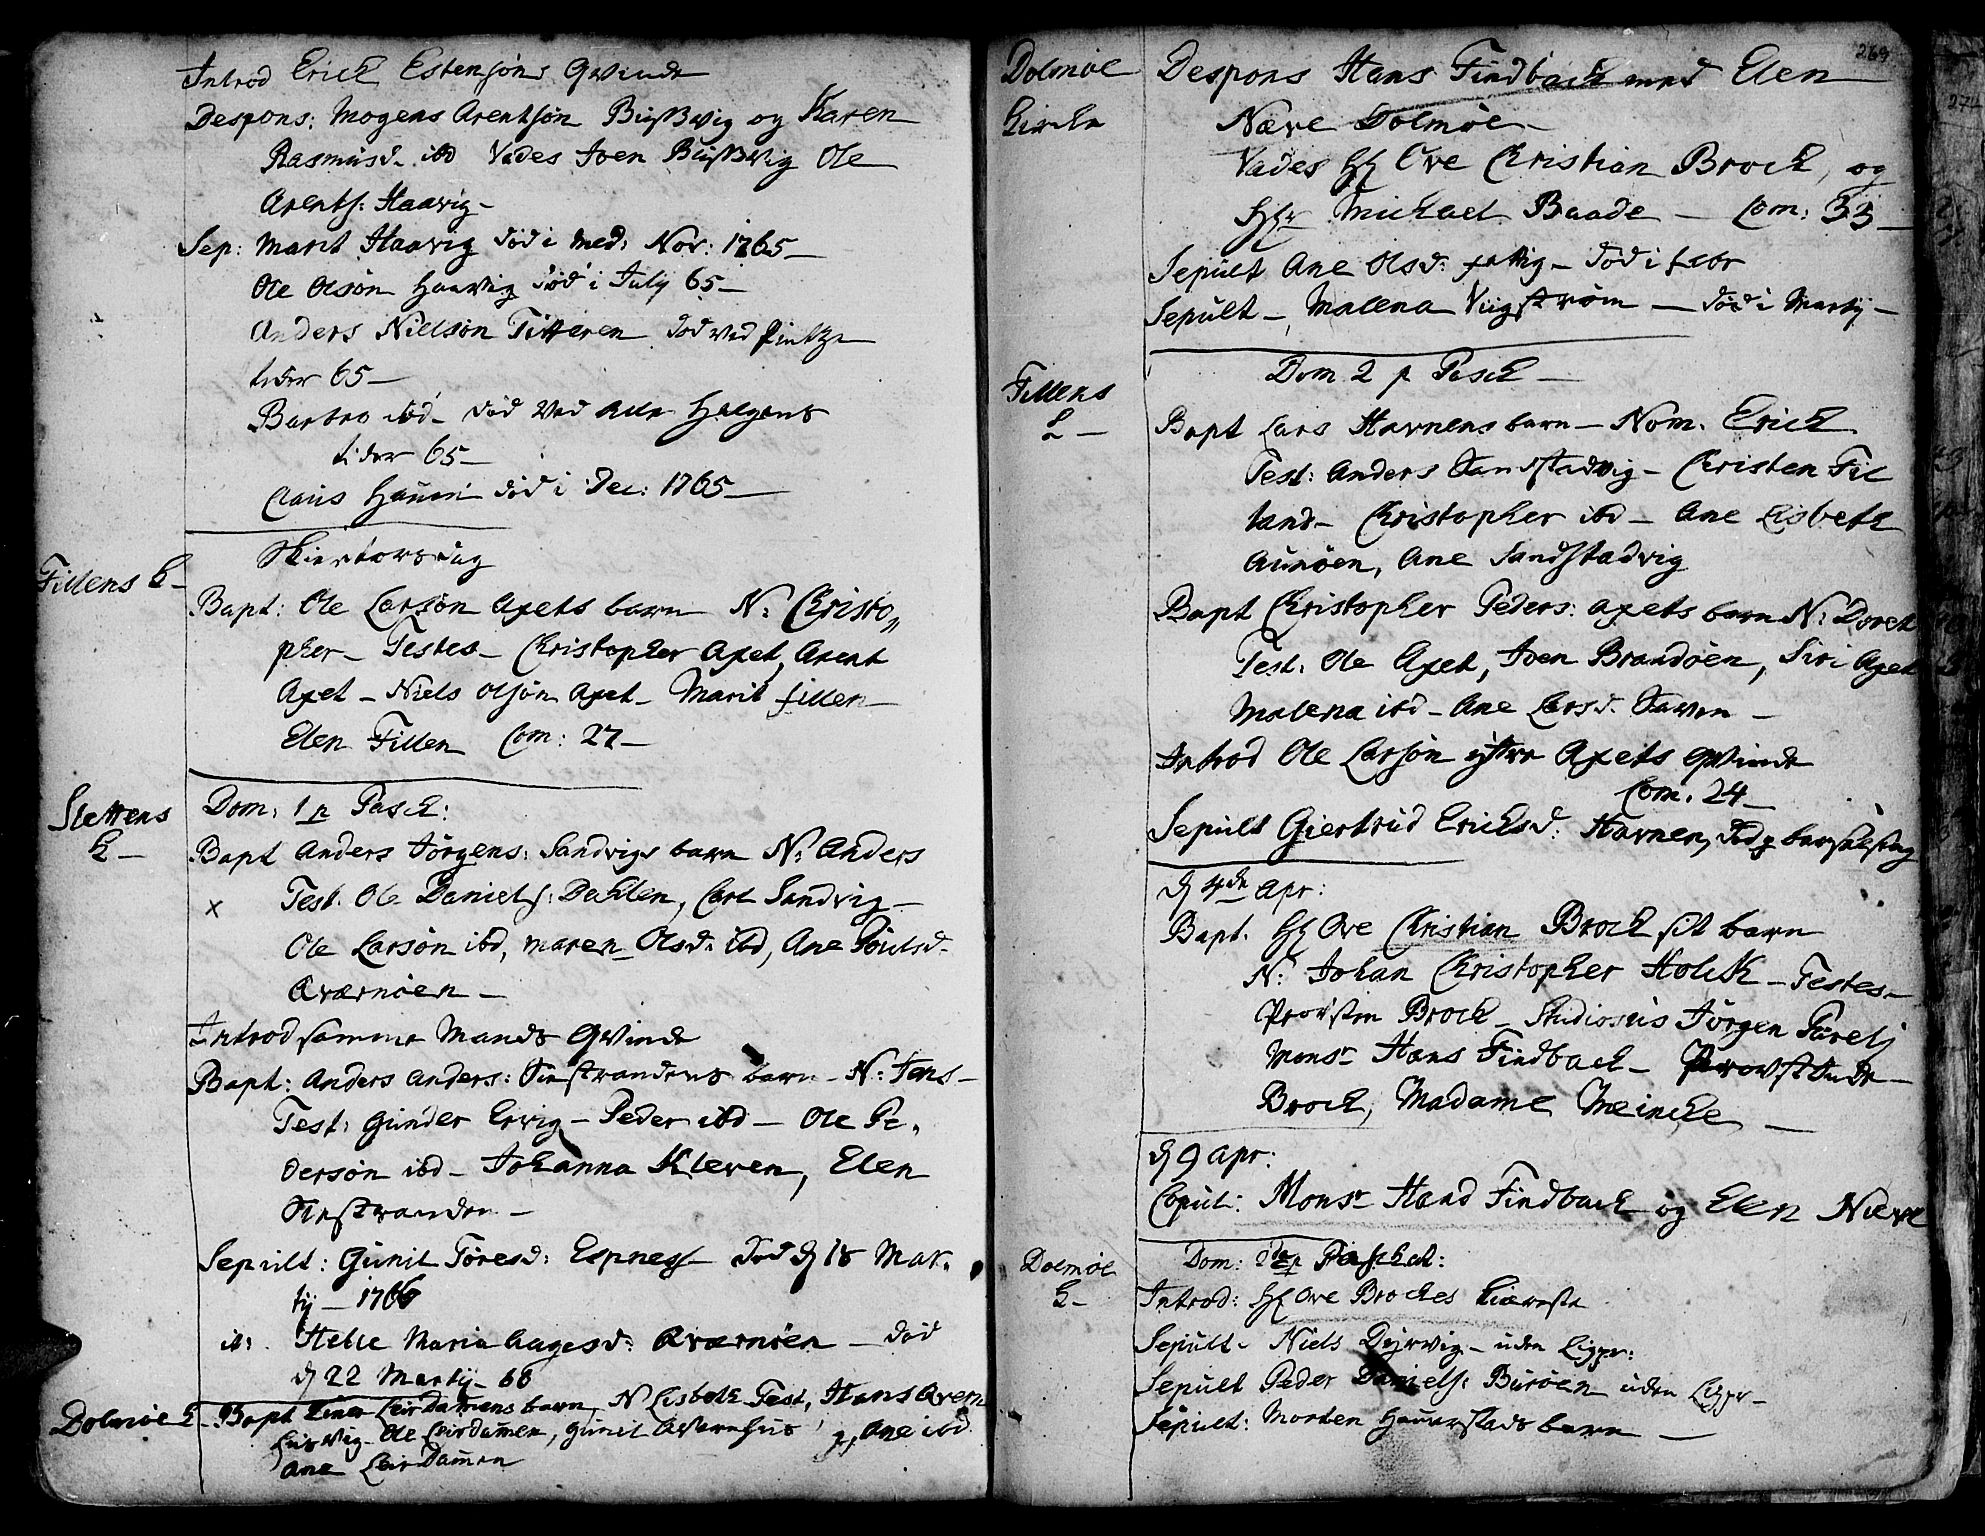 Introd Erich Estensøns Qvinde
Despons: Mogens Arentsøn Bugsvig og Karen
Rasmusd. ibd Vades Joen Bugsvig Ole
Arents: Haavig
Sep: Marit Haavig død i Med: Nov: 1765
Ole Olsøn Haavig død i July 65
Anders Nielsøn Titteren død ved
tider 65
Barbro ibd død ved Alle Helgens
tider 65
Claus død i Dec: 1765
Fillens K
Skiertorsdag
Bapt: Ole Larsøn Axets barn N: Christo,,
pher Testes Christopher Axet, Arent
Axet Niels Olsøn Axet Marit Fillen
Elen Fillen Com: 27
Slettens
K
Dom: 1 p Pasch:
Bapt Anders Jørgens: Sandvigs barn N: Anders
x Test. Ole Daniels: Dahlen, Carl Sandvig
Ole Larsøn ibd, Maren Olsd: ibd, Ane Poulsd.
Qværnøen
Introd samme Mands Qvinde
Bapt: Anders Anders: barn N: Jens
Test: Gunder Ervig Peder ibd Ole Pe,
dersøn ibd Johanna Kleven, Elen
Sepult: Gunil Toresd: Espnes død d 18 Mar,
tij 1766
it: Helle Maria Aagesd: Qværnøen død
d 22 Martij 66
Dolmøe K Bapt Einer Leirdamens barn N Lisbeth Test, Hans
Ole Leirdamen, Gunil , Ane ibd
Ane Leirdamen
269
Dolmøe
Kirche
Despons Hans Findbach med Elen
Næve Dolmøe
Vades Hr Ove Christian Broch, og
Hr Michael Baade Com: 33
Sepult Ane Olsd: fattig død i Febr
Sepult Malena Viigstrøm død i Martij
Fillens
K
Dom 2 p Pasch
Bapt Lars Havnens barn Nom. Erich
Test: Anders Sandstadvig Christen Fil
land Christopher ibd Ane Lisbeth
Aunøen, Ane Sandstadvig
Bapt Christopher Peders: Axets barn N: Doret
Test: Ole Axet, Joen Brandøen, Siri Axet
Malena ibd Ane Larsd.
Introd Ole Larsøn yttre Axets Qvinde
Com. 24
Sepult Giertrud Erichsd: Havnen, død
d 4de Apr:
Bapt. Hr Ove Christian Broch sit barn
N: Johan Christopher Holck Testes
Provsten Broch Studiosus Jørgen
Monsr Hans Findbach Provstinde
Broch, Madame Meincke
d 9 Apr:
Copul: Monsr Hans Findbach og Elen Næve
Dolmøe
K
Dom: p Paschat:
Introd: Hr Ove Broches Kiæreste
Sepult Niels Dyrvig uden Ligpr:
Sepult Peder Daniels: Burøen uden Ligpr
Sepult: Morten barn